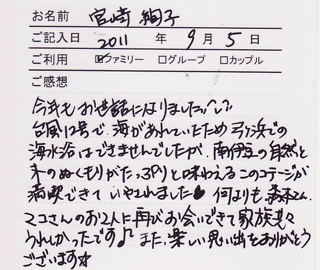 お名前 宮崎 絢子
ご記入日 2011 年 9月 5日
ご利用 ☑ファミリー □グループ □カップル
ご感想
今年もお世話になりました
台風12号で、海があれていたため弓ヶ浜での
海水浴はできませんでしたが、南伊豆の自然と
木のぬくもりがたっぷりと味わえるこのコテージが
満喫できていやされました 何よりも 森本さん、
マコさんのお2人に再びお会いできて家族共々
うれしかったです♪ また、楽しい思い出をありがとう
ございます☆